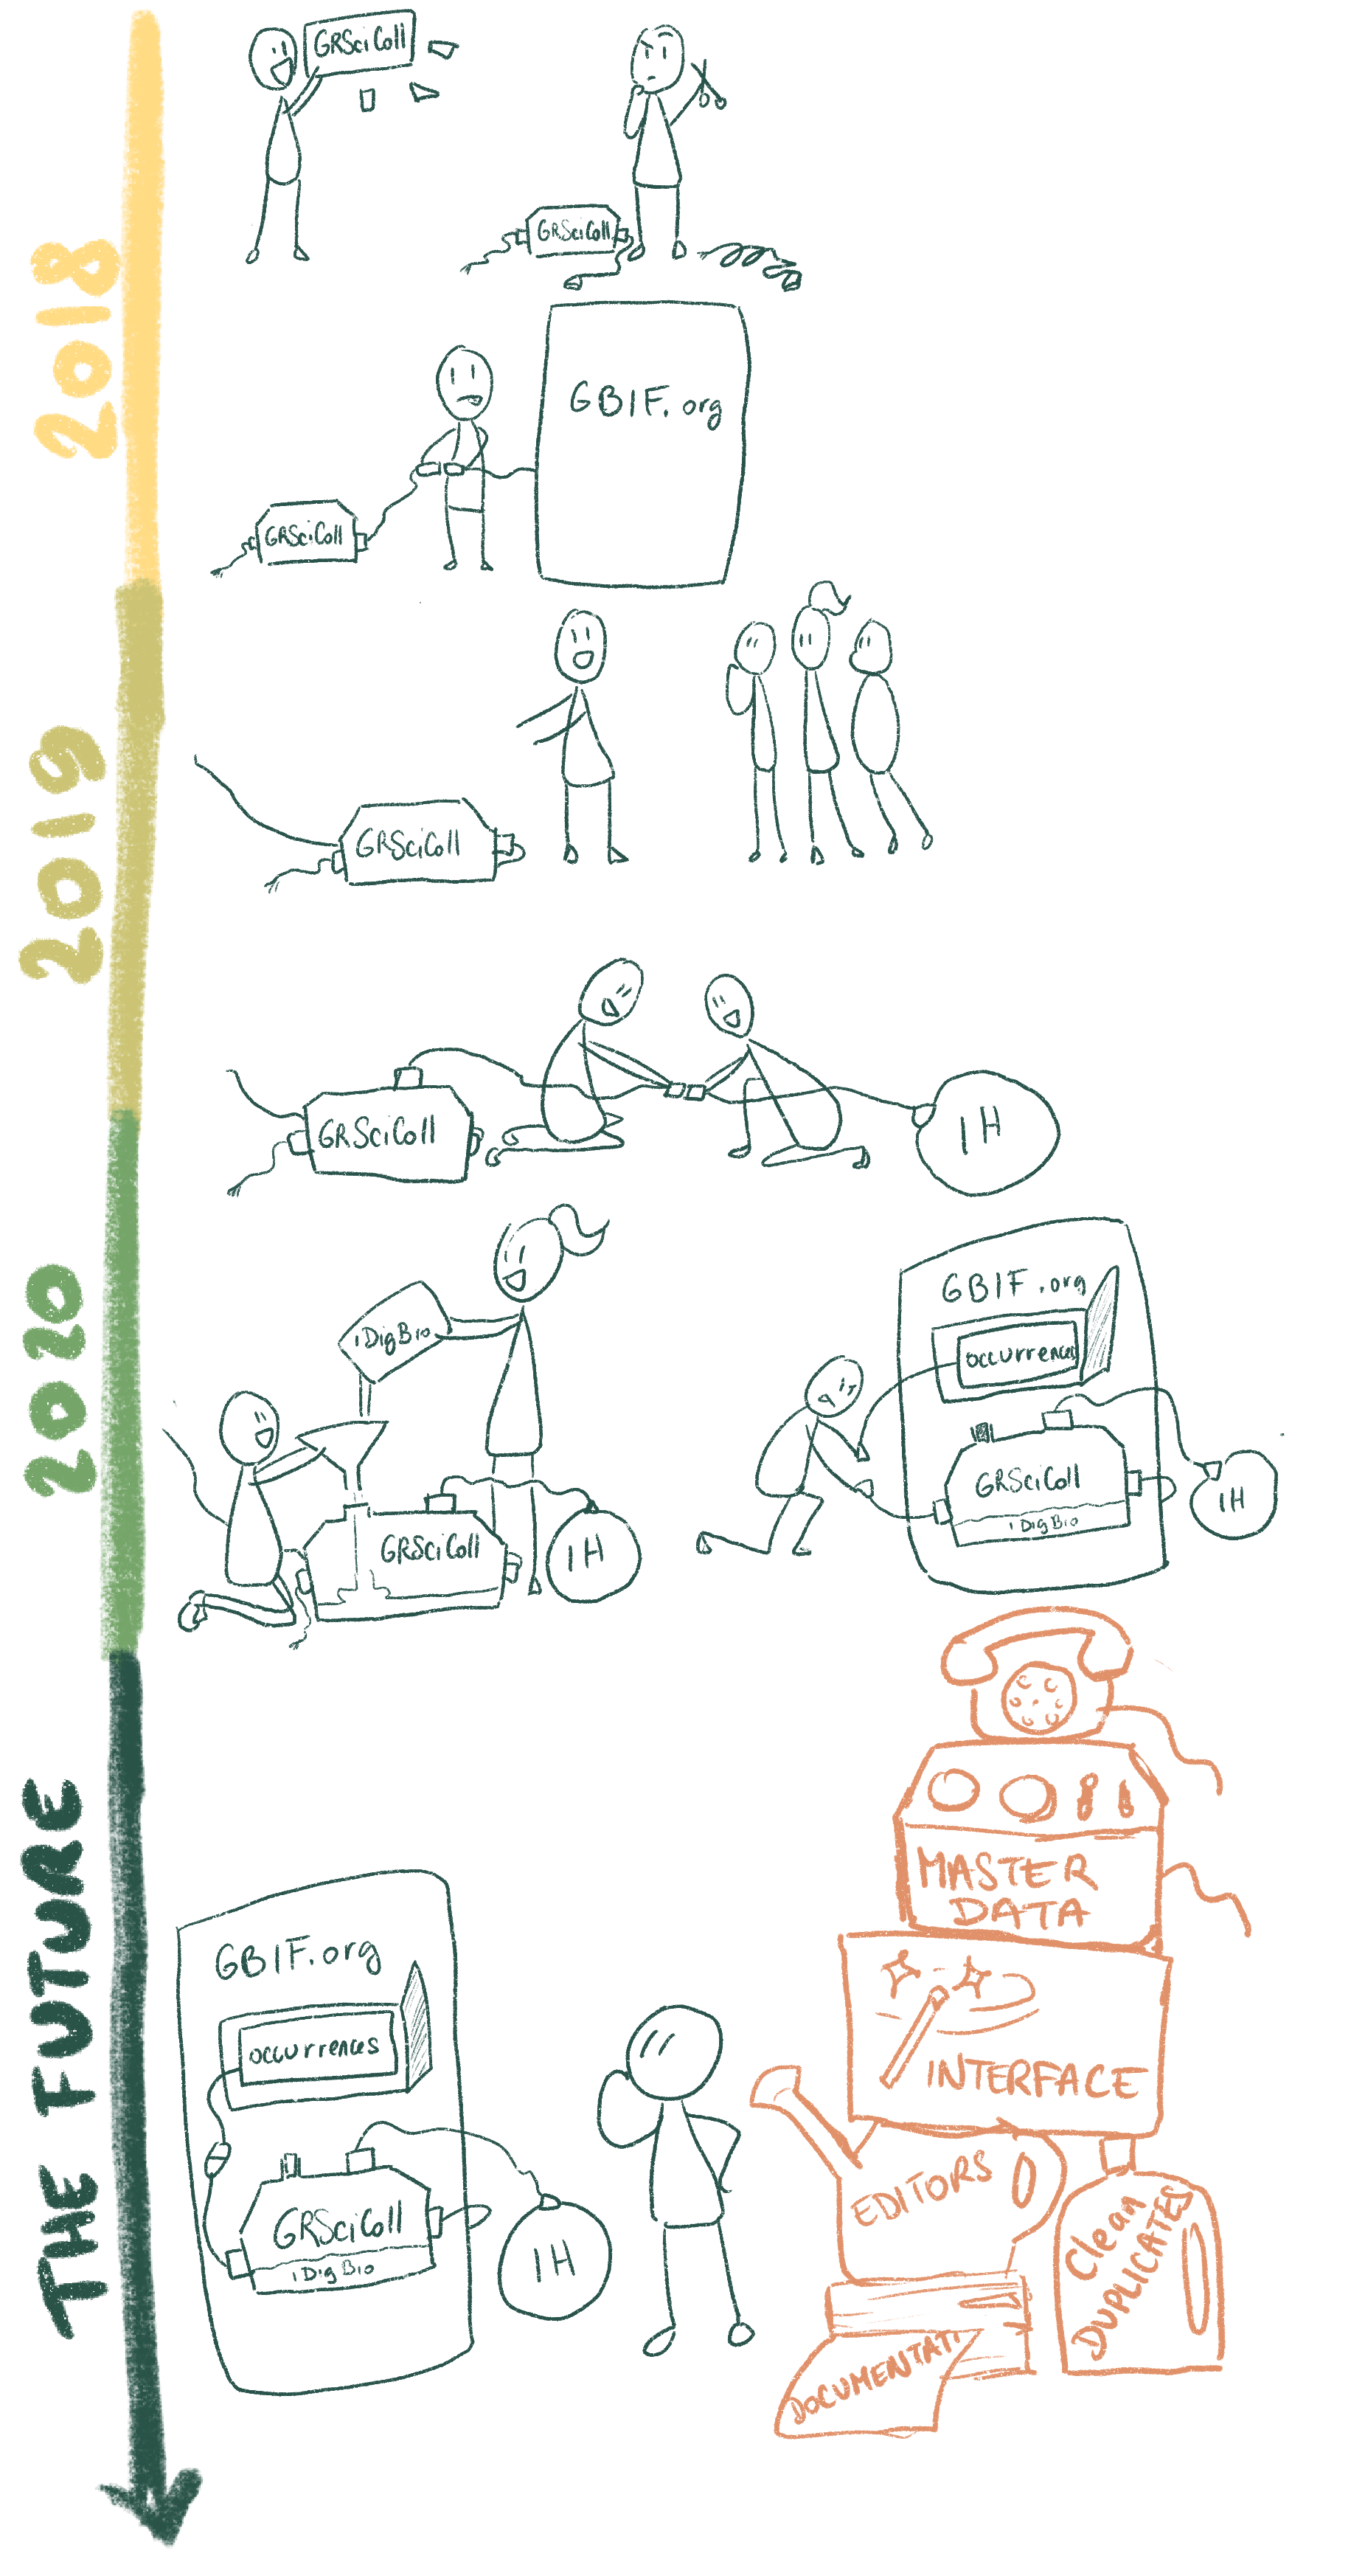 2018
GRSciColl
GRSciColl
GBIF.org
GRSciColl
2019
GRSciColl
GRSciColl
IH
2020
iDigBio
GRSciColl
IH
GBIF.org
occurrences
GRSciColl
iDigBio
IH
THE FUTURE
GBIF.org
occurrences
GRSciColl
iDigBio
IH
MASTER
DATA
INTERFACE
EDITORS
Clean
DUPLICATES
DOCUMENTATI